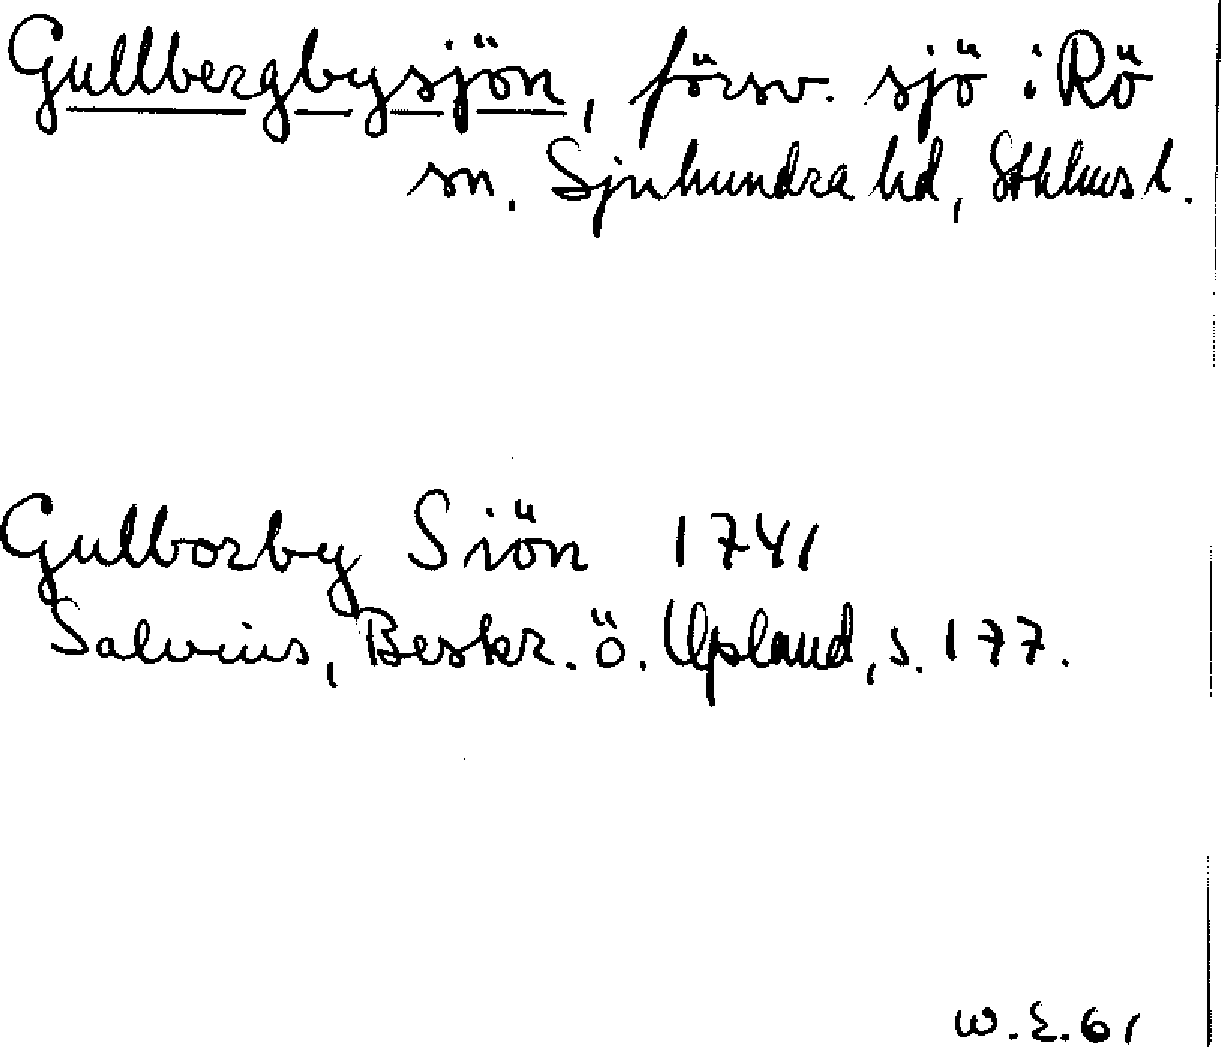 Gullbergbysjön, försv. sjö i Rö
sn. Sjuhundra hd, Sthlms l.
Gulborby Siön 1741
Salvius, Beskr. ö. Upland, s. 177.
W.E.61